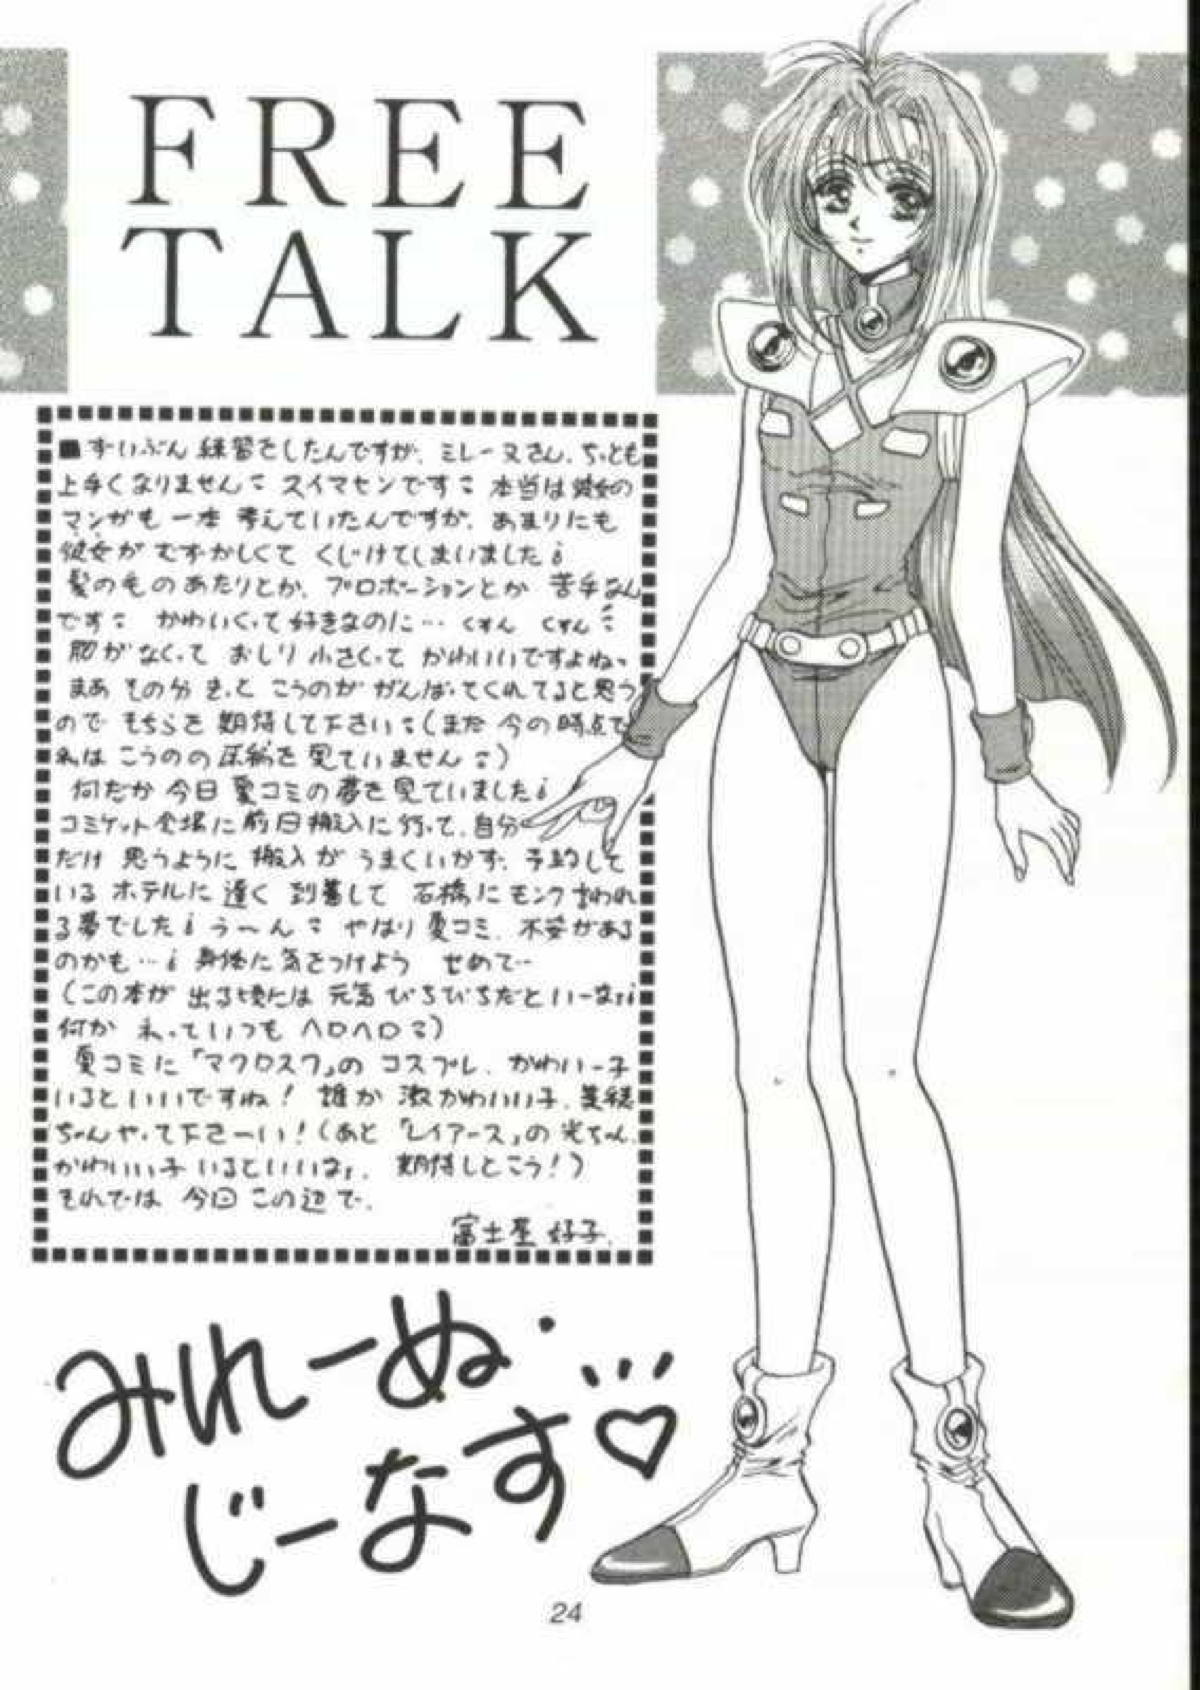 FREE
TALK
■ずいぶん練習をしたんですが、ミレーヌさん、ちっとも
上手くなりません スイマセンです 本当は彼女の
マンガも一本 考えていたんですが、あまりにも
彼女が むずかしくて くじけてしまいました
髪の毛のあたりとか、プロポーションとか 苦手なん
です かわいくって好きなのに… くすん くすん
胸がなくって おしり小さくって かわいいですよね
まあ その分 きっと こうのが がんばってくれてると思う
ので そちらを 期待して下さい (まだ 今の時点で
私は こうのの原稿を見ていません)
何だか 今日 夏コミの夢を見ていました
コミケット会場に前日搬入に行って、自分
だけ 思うように 搬入が うまくいかず、予約して
いる ホテルに 遅く 到着して 石橋に モンク 言われ
る夢でした うーん やはり 夏コミ、不安がある
のかも… 身体に気をつけよう せめて…
(この本が 出る頃には 元気 ぴちぴちだといーな
何か わっていつも ヘロヘロ)
夏コミに「マクロス7」の コスプレ、かわいー子
いると いいですね! 誰か 激かわいい子、美穂
ちゃんやって下さーい! (あと 「レイアース」の 光ちゃん、
かわいい子 いるといいな、 期待しとこう!)
それでは 今回 この辺で、
富士屋 好子
みれーぬ・
じーなす♡
24